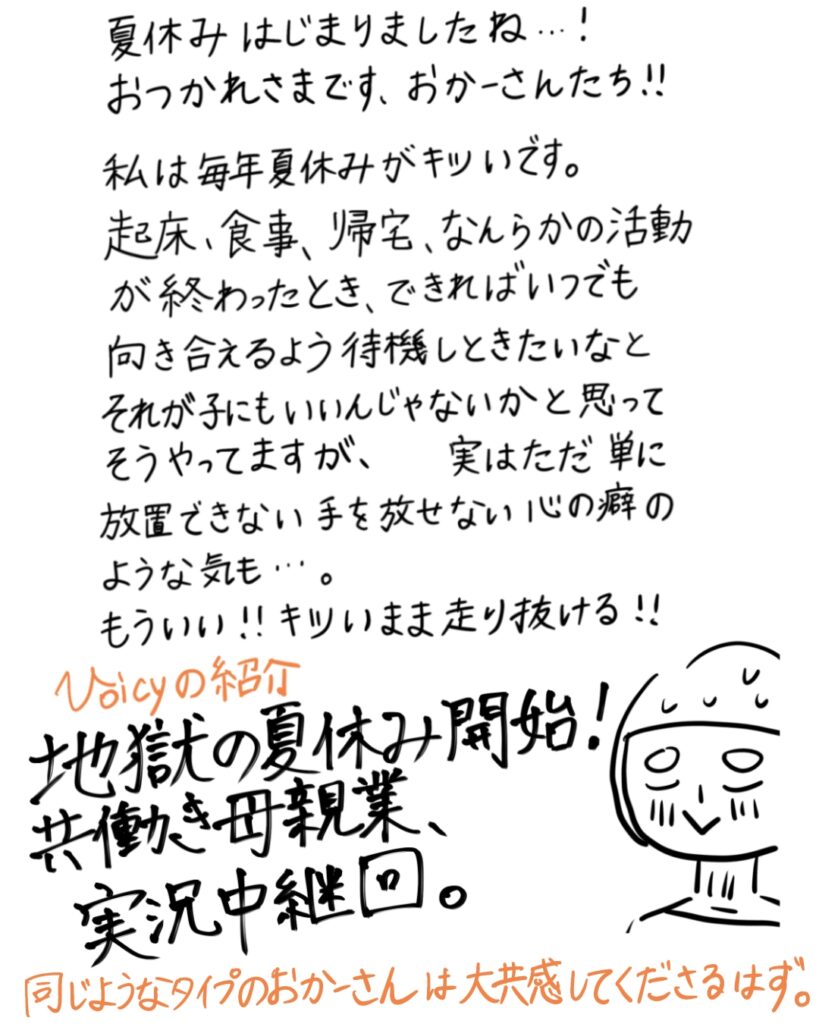 夏休みはじまりましたね…!
おつかれさまです、おかーさんたち!!
私は毎年夏休みがキツいです。
起床、食事、帰宅、なんらかの活動
が終わったとき、できればいつでも
向き合えるよう待機しときたいなと
それが子にもいいんじゃないかと思って
そうやってますが、 実はただ単に
放置できない手を放せない心の癖の
ような気も…。
もういい!!キツいまま走り抜ける!!
Voicyの紹介
地獄の夏休み開始!
共働き母親業、
実況中継回。
同じようなタイプのおかーさんは大共感してくださるはず。